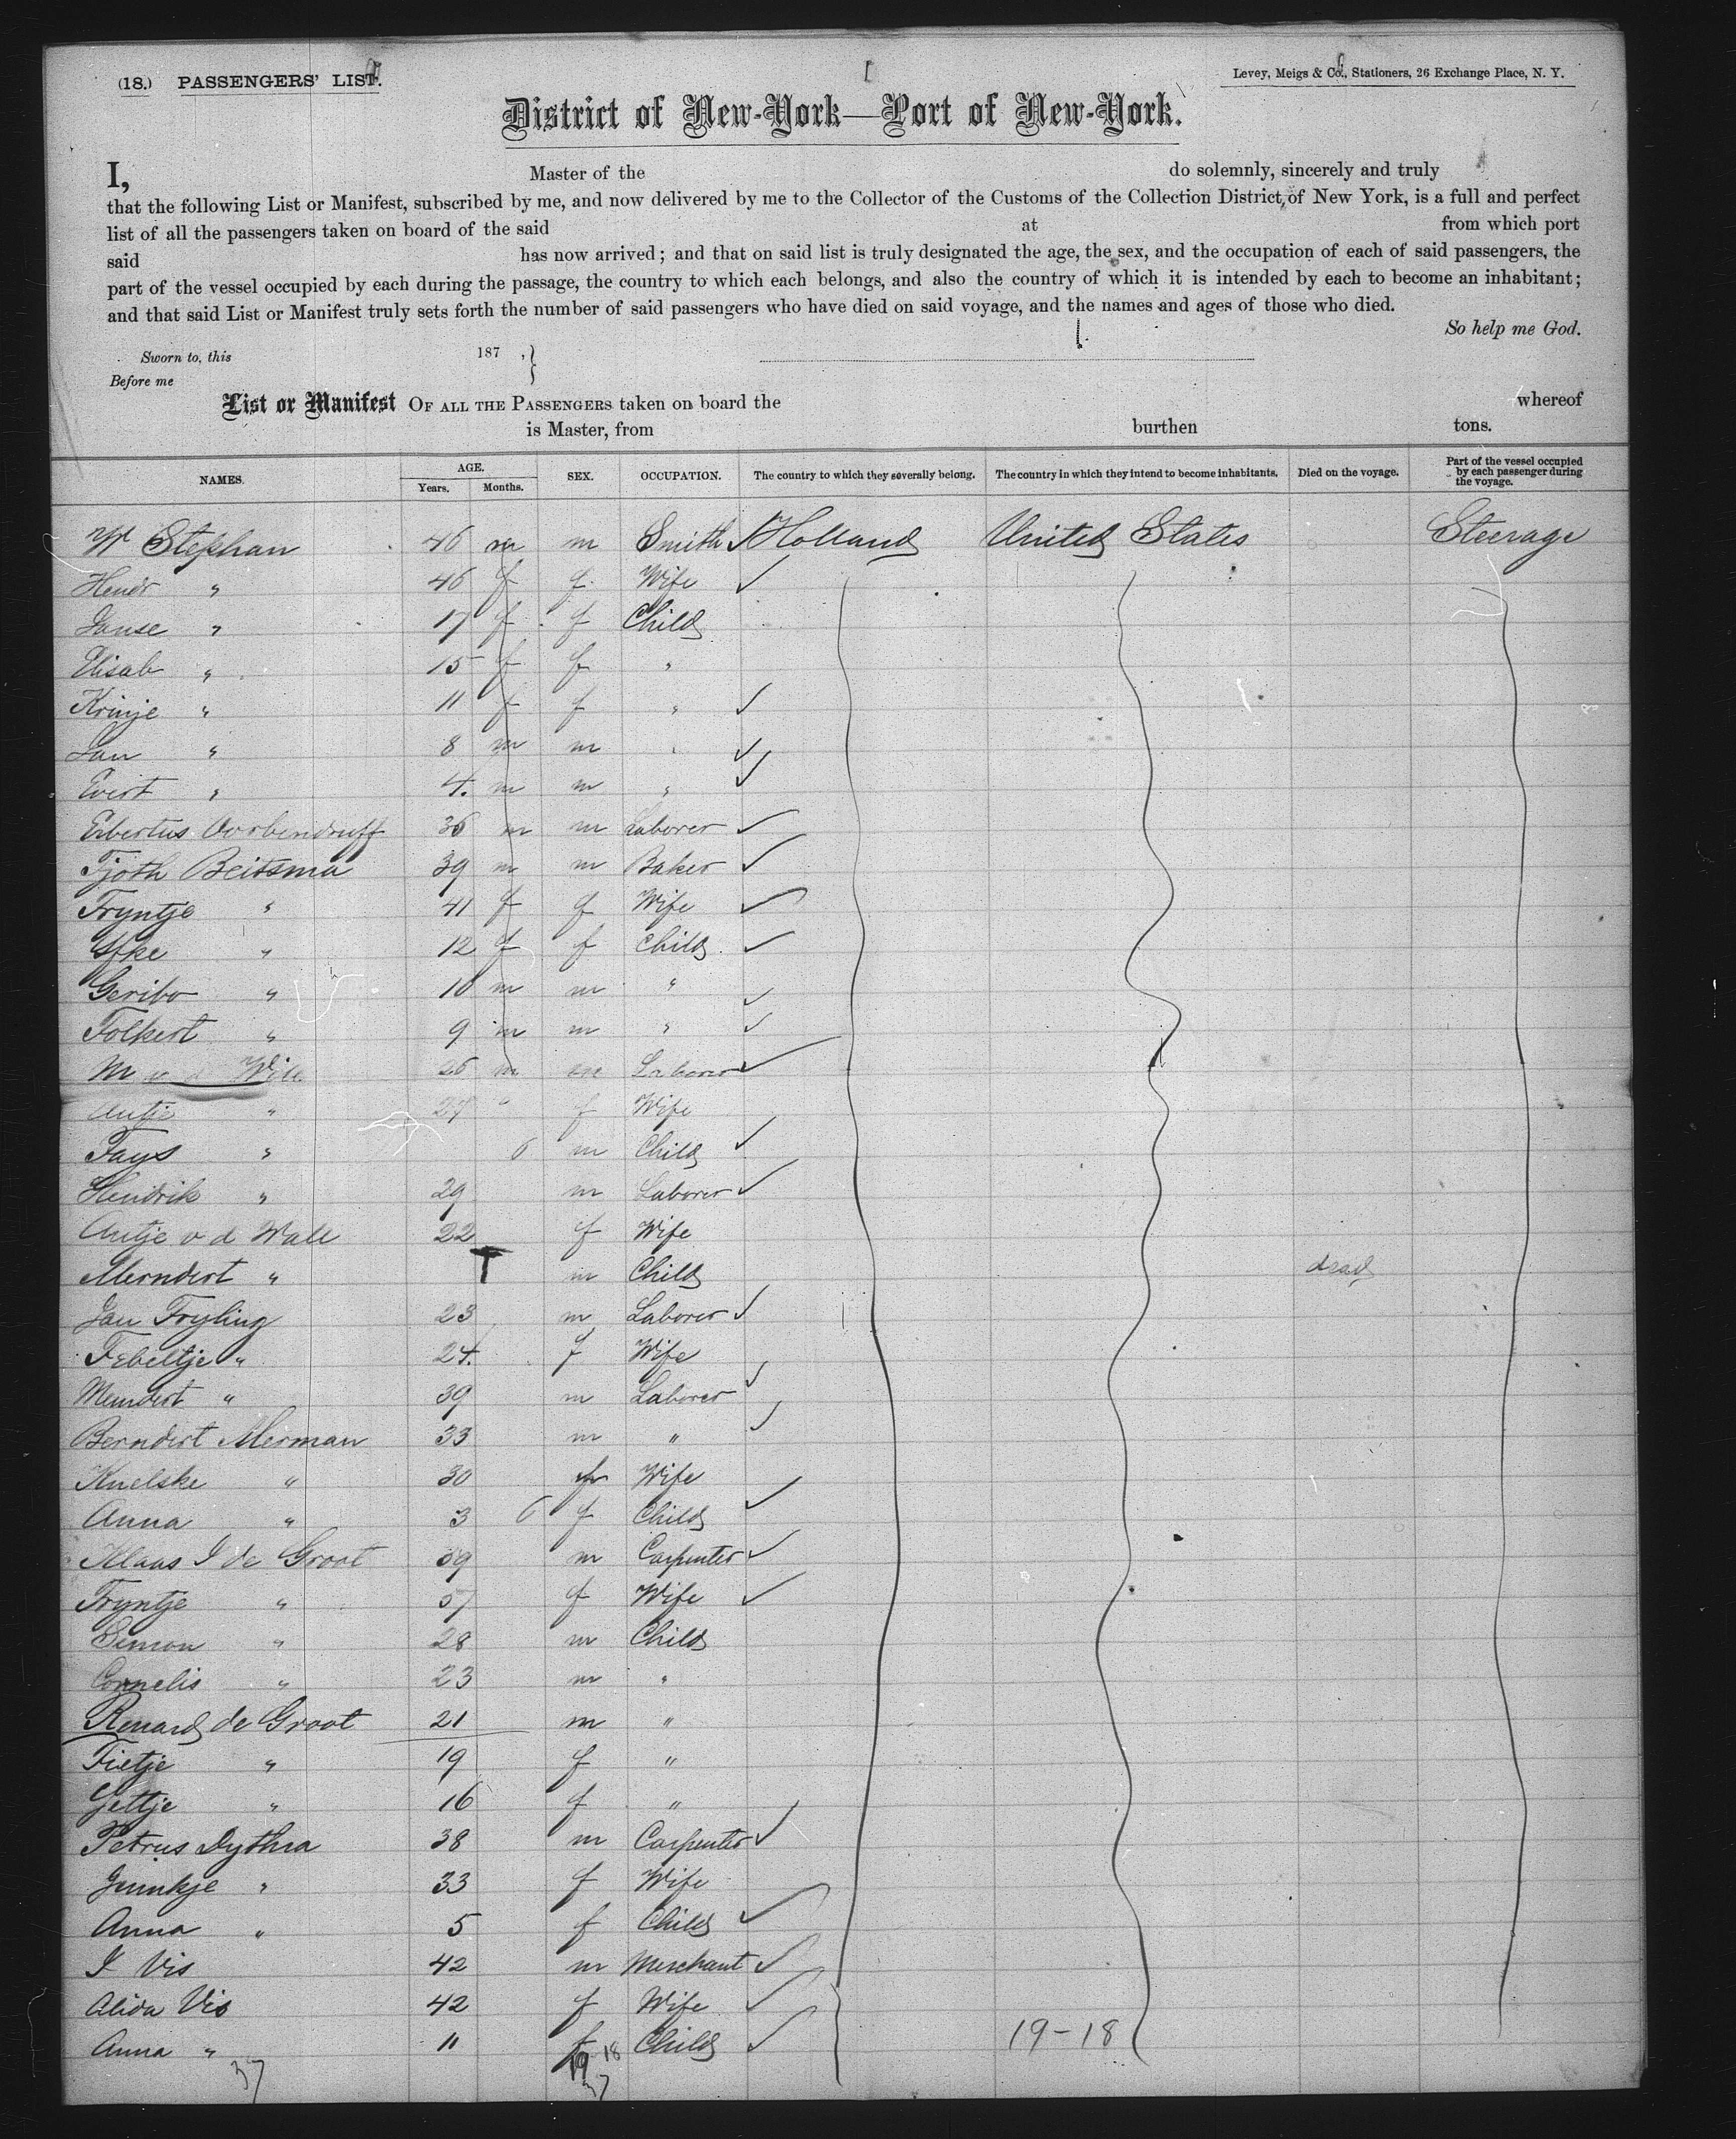 (18.) PASSENGERS' LIST.
Levey, Meigs & Co., Stationers, 26 Exchange Place, N. Y.
District of New-York—Port of New-York.
I, Master of the do solemnly, sincerely and truly
that the following List or Manifest, subscribed by me, and now delivered by me to the Collector of the Customs of the Collection District, of New York, is a full and perfect
list of all the passengers taken on board of the said at from which port
said has now arrived; and that on said list is truly designated the age, the sex, and the occupation of each of said passengers, the
part of the vessel occupied by each during the passage, the country to which each belongs, and also the country of which it is intended by each to become an inhabitant;
and that said List or Manifest truly sets forth the number of said passengers who have died on said voyage, and the names and ages of those who died.
So help me God.
Sworn to, this 187 ,
Before me
List or Manifest OF ALL THE PASSENGERS taken on board the whereof
is Master, from burthen tons.
NAMES. AGE. Years. Months. SEX. OCCUPATION. The country to which they severally belong. The country in which they intend to become inhabitants. Died on the voyage. Part of the vessel occupied by each passenger during the voyage.
W Stephan 46 m m Smith Holland United States Steerage
Hendr " 46 f f Wife
Janse " 17 f f Child
Elisab " 15 f f "
Krinje " 11 f f "
Jan " 8 m m "
Evert " 4. m m "
Ebertus 36 m m Laborer
Tjoth Beitsma 39 m m Baker
Tryntje " 41 f f Wife
" 12 f f Child
Geribo " 10 m m "
Folkert " 9 m m "
M v d 26 m m Laborer
Antje " 27 " f Wife
Tays " 6 m Child
Hendrik " 29 m Laborer
Antje v d Wall 22 f Wife
Merndert " m Child dead
Jan Fryling 23 m Laborer
Febeltje " 24. f Wife
Meindert " 39 m Laborer
Berndert Merman 33 m "
Knelske " 30 f Wife
Anna " 3 6 f Child
Klaas I de Groot 59 m Carpenter
Tryntje " 57 f Wife
Simon " 28 m Child
Cornelis " 23 m "
Renard de Groot 21 m "
Fietje " 19 f "
Gettje " 16 f "
Petrus Dythra 38 m Carpenter
Junkje " 33 f Wife
Anna " 5 f Child
I Vis 42 m Merchant
Alida Vis 42 f Wife
Anna " 11 f Child
19-18
37 19 18
37